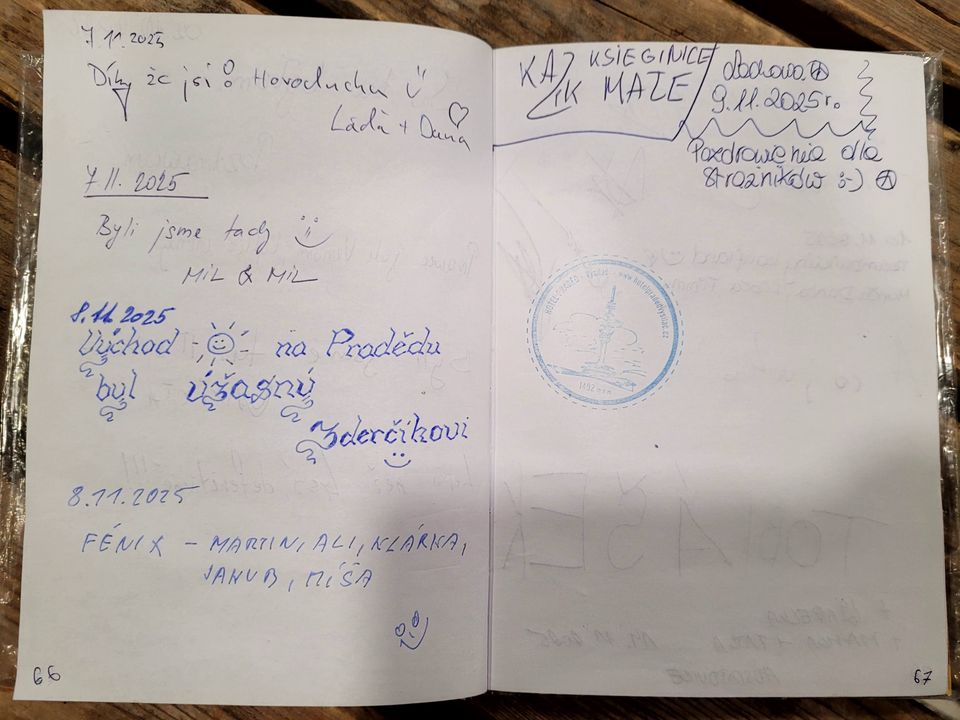 7.11.2025
Díky že jsi Horoduchu
Láďa + Dana
7.11.2025
Byli jsme tady
MiL & MiL
8.11.2025
Východ na Pradědu
byl úžasný
Zderčíkovi
8.11.2025
FÉNIX - MARTIN, ALI, KLÁRKA,
JAKUB, MÍŠA
66
KAZ KSIEGINICE
IK MAŁE
9.11.2025r.
Pozdrowienia dla
strażników :-)
HOTEL PRADĚD - Vysílač - www.hotelpradedvysilac.cz
1492 m n.m.
TOBIÁŠEK
67